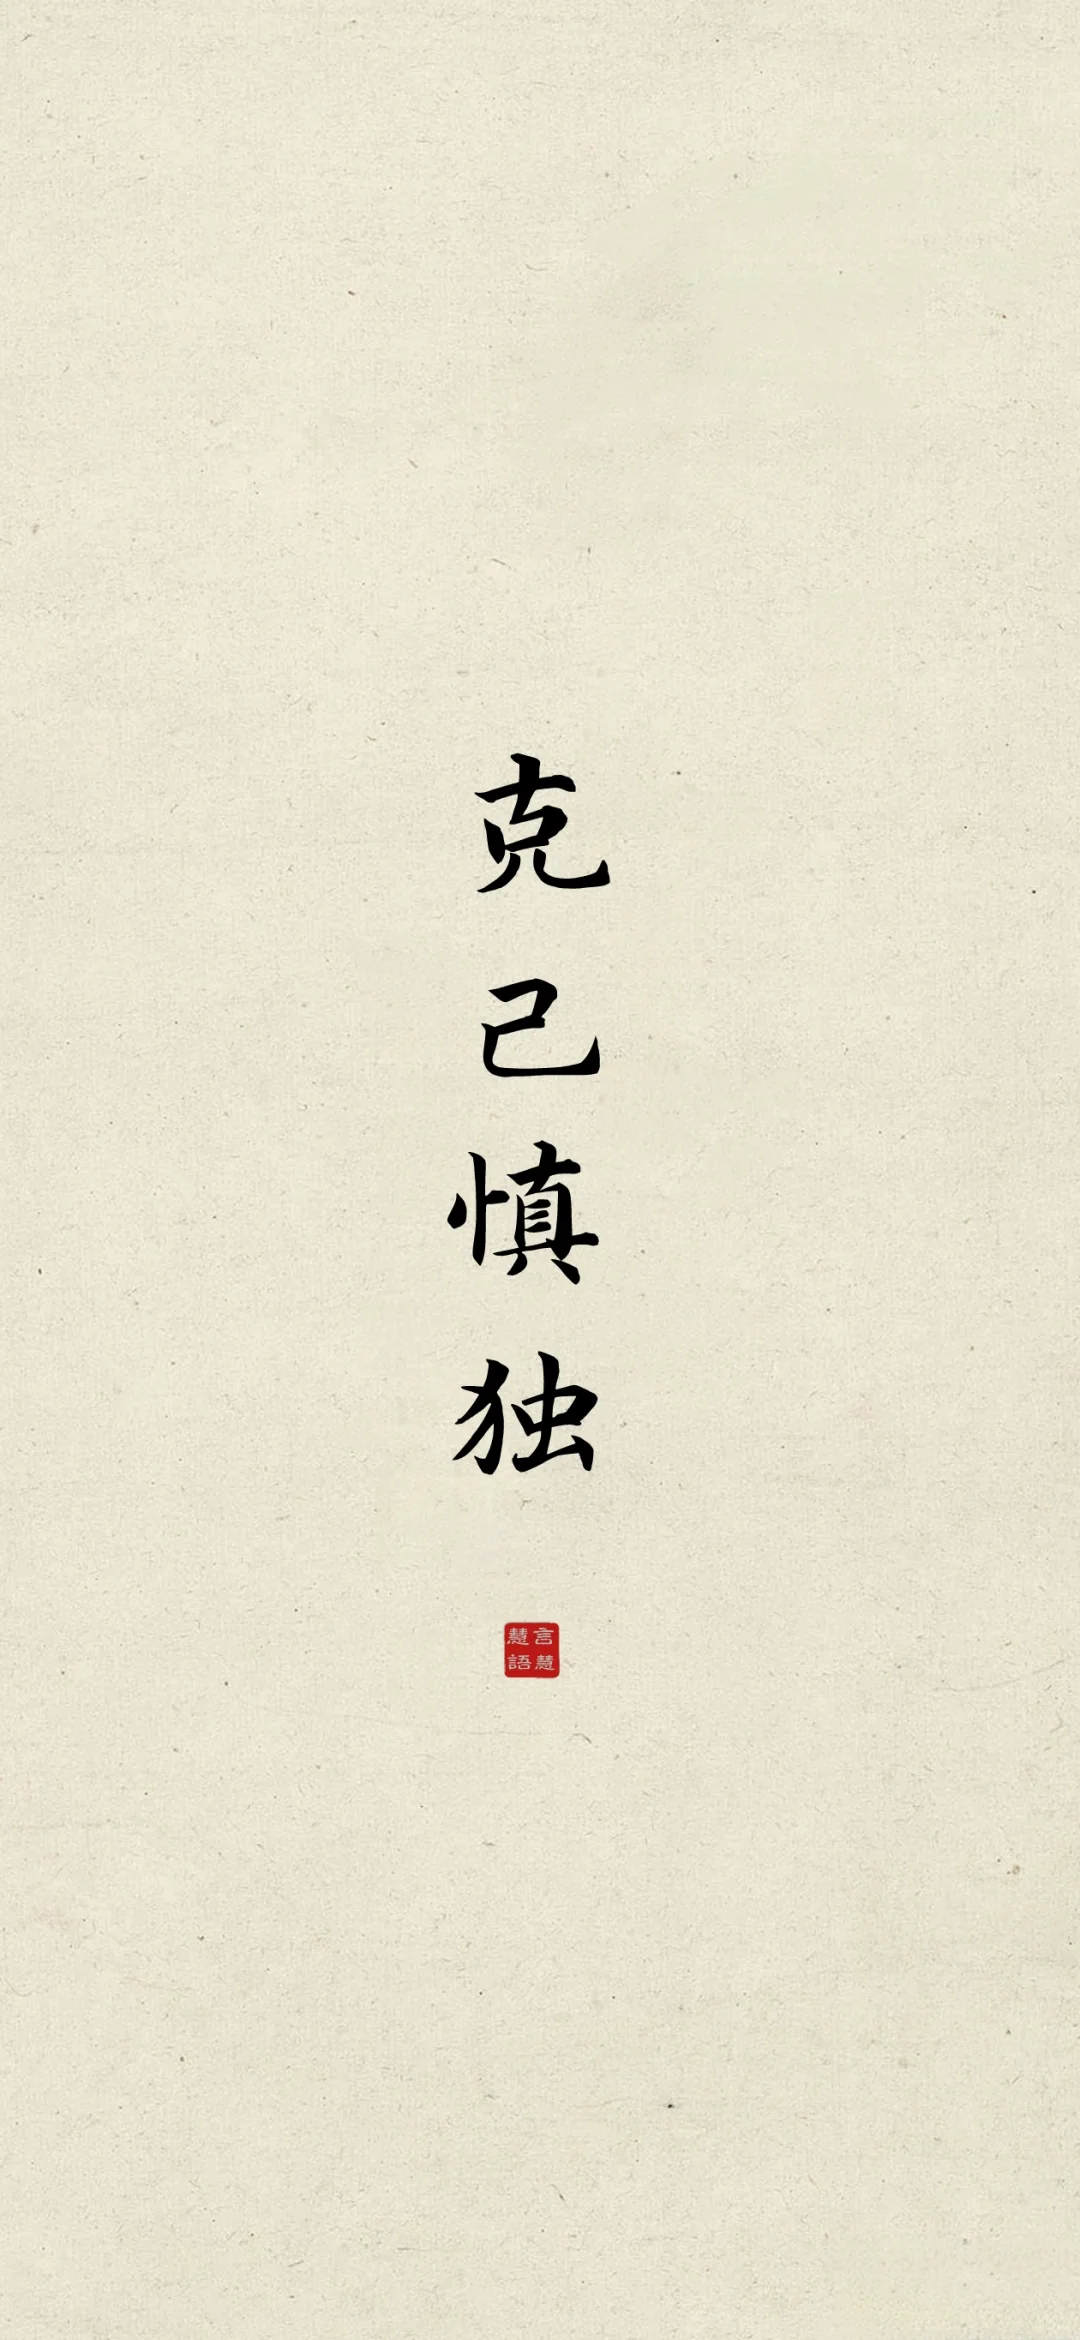 克己慎独
言慧慧語